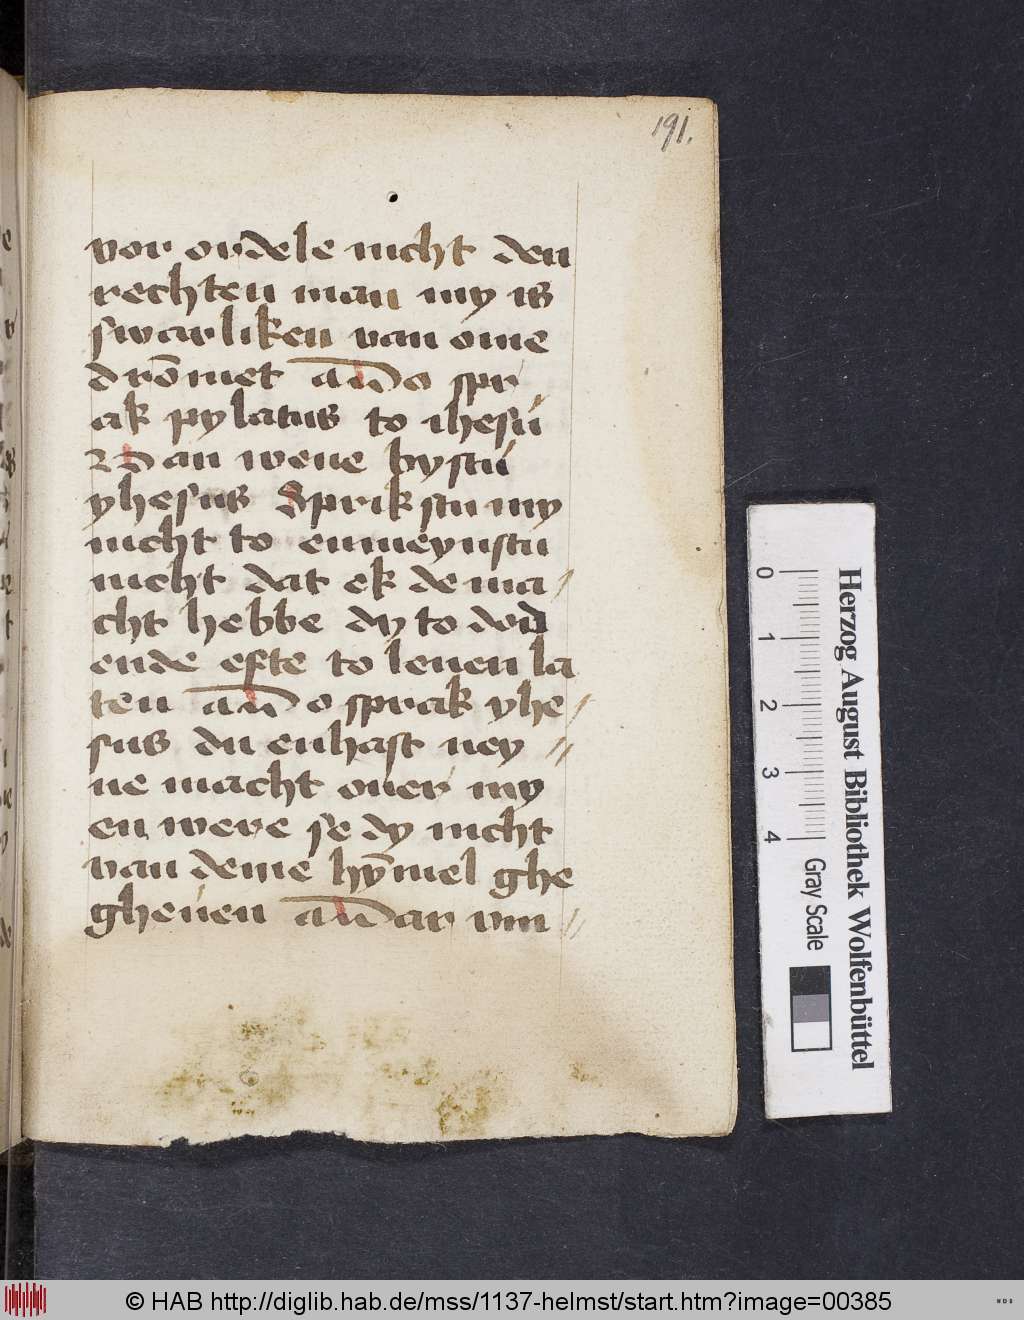 191.
vor ordele nicht den
rechten man my is
swarliken van ome
drōmet spr
ak pylatus to ihesu
van wene bystu
yhesus Sprikstu my
nicht to enmeynstu
nicht dat ek de ma
cht hebbe dy to dod
ende efte to leuen la
ten sprak yhe
sus du enhast ney
ne macht ouer my
en were se dy nicht
van deme hȳmel ghe
gheuen vm
Herzog August Bibliothek Wolfenbüttel
0 1 2 3 4
Gray Scale
© HAB http://diglib.hab.de/mss/1137-helmst/start.htm?image=00385